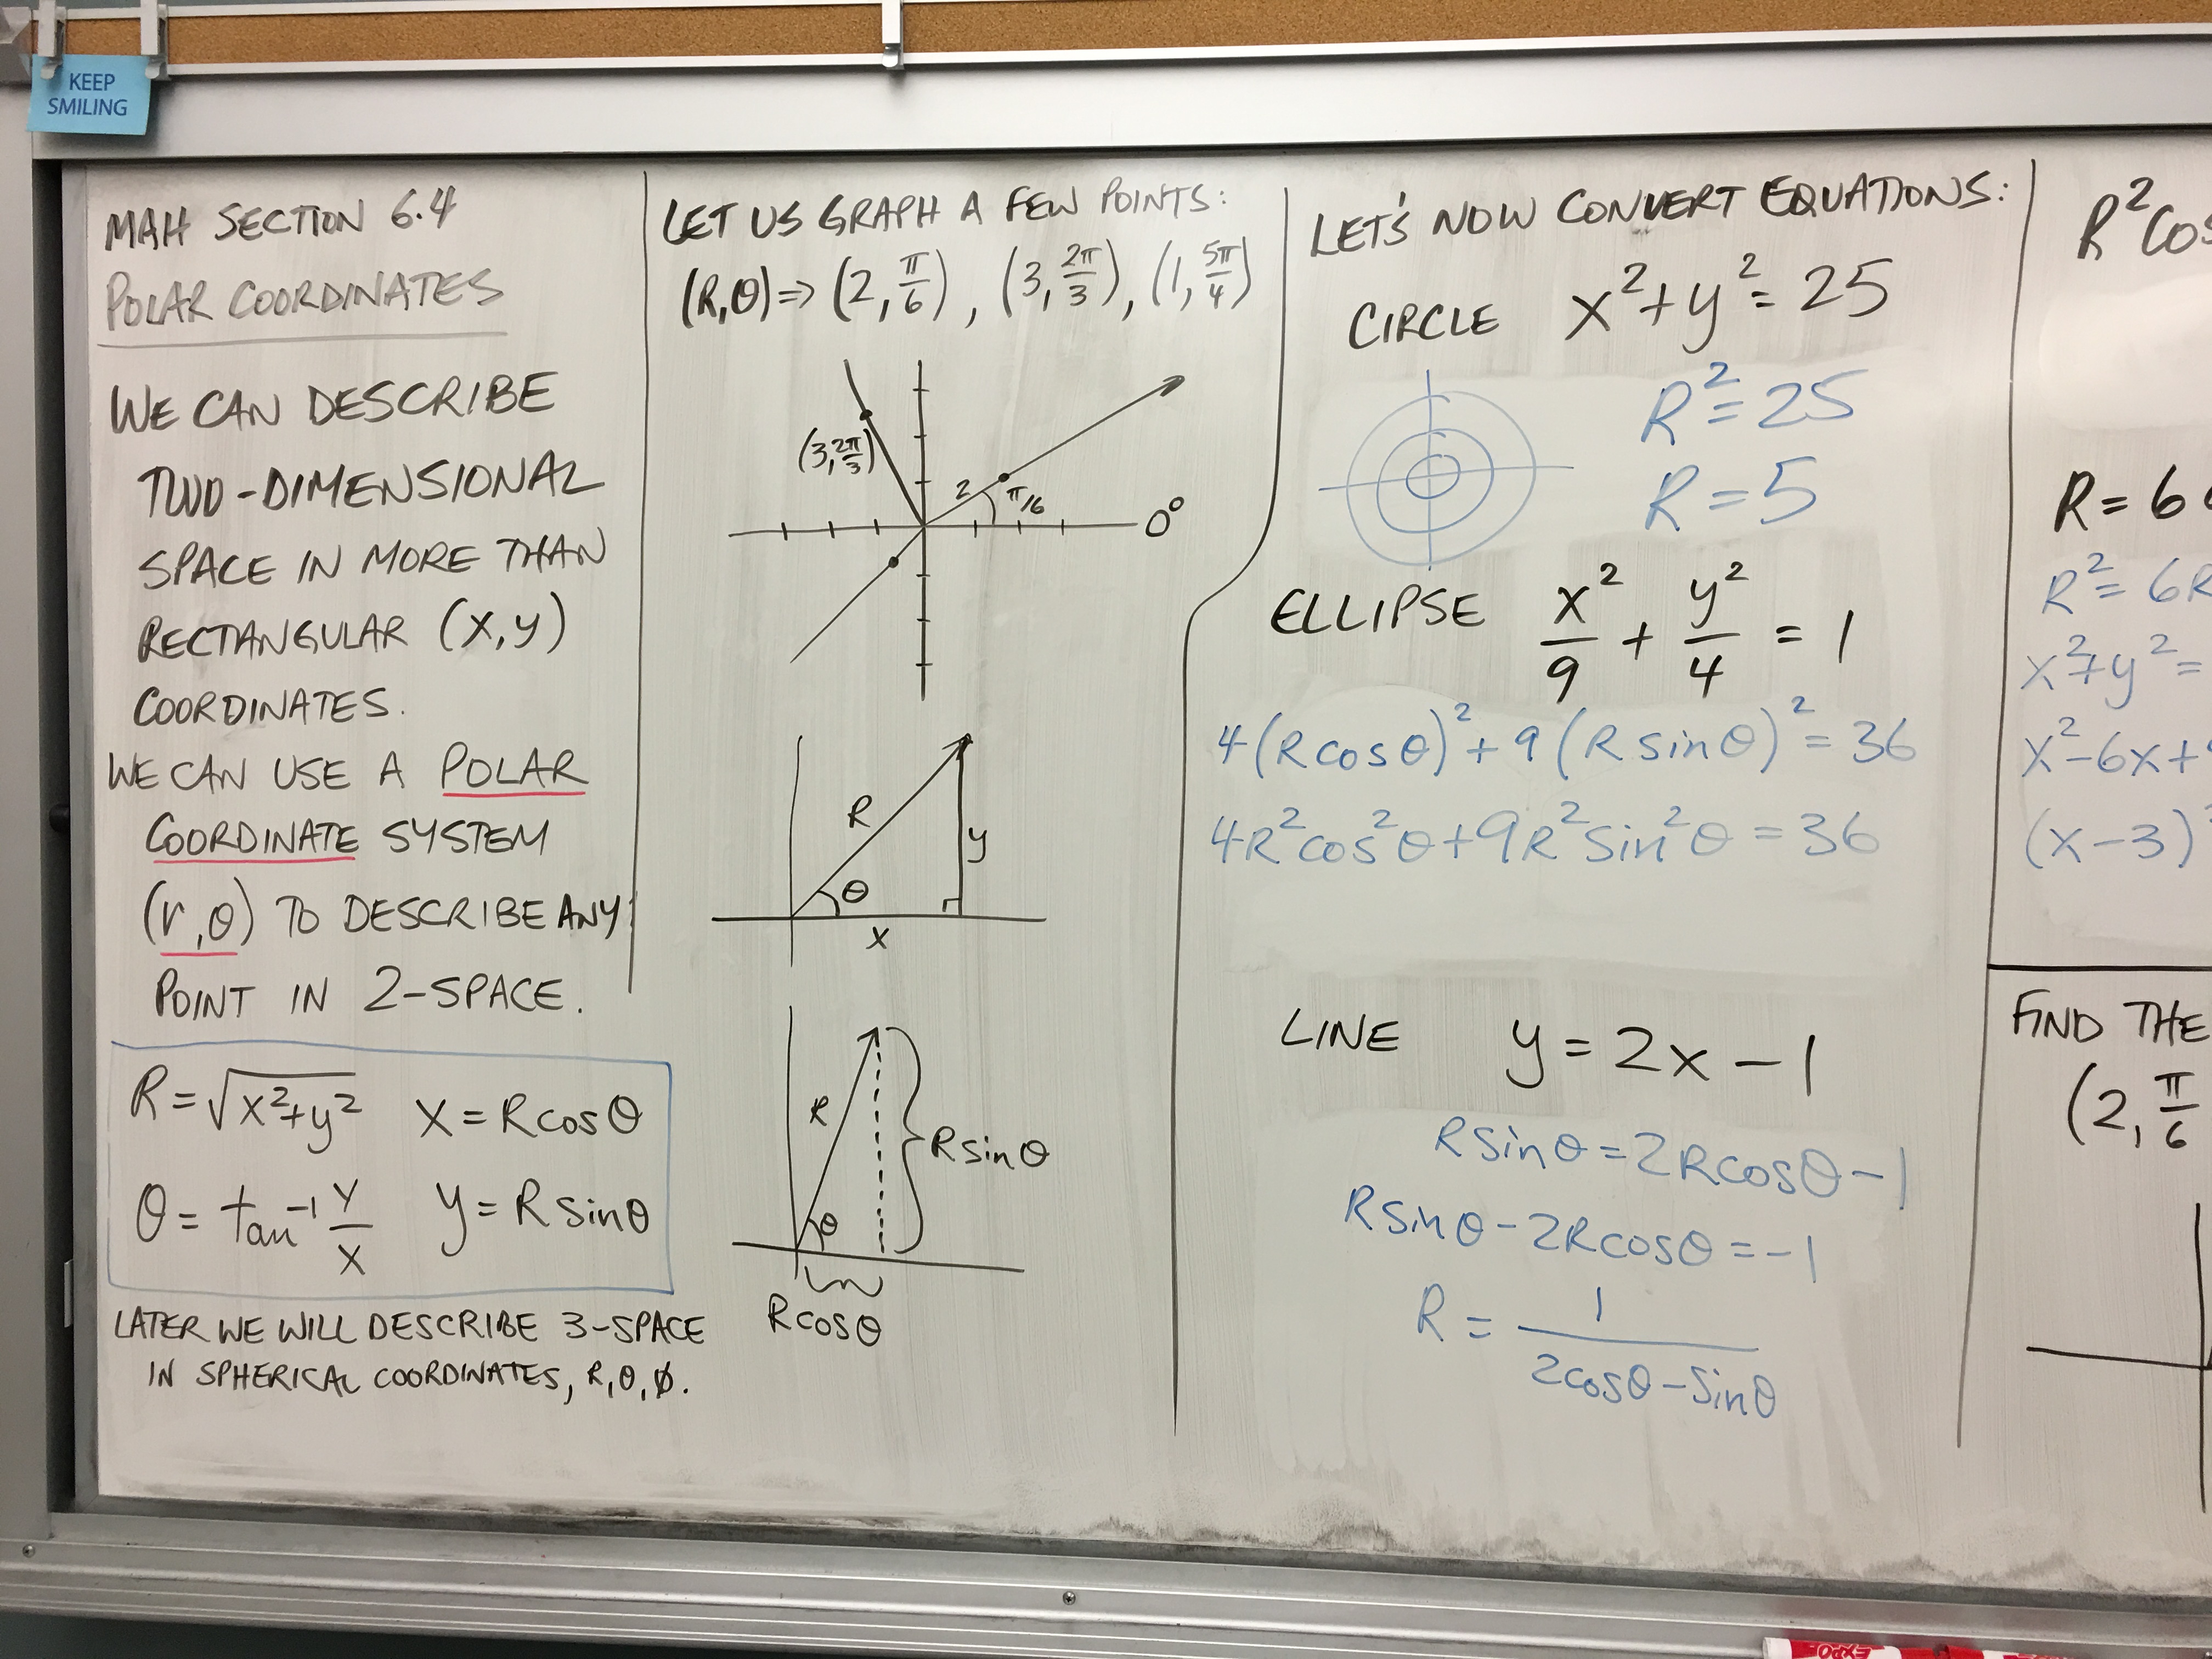 KEEP
SMILING
MAH SECTION 6.4
POLAR COORDINATES
WE CAN DESCRIBE
TWO-DIMENSIONAL
SPACE IN MORE THAN
RECTANGULAR (x,y)
COORDINATES.
WE CAN USE A POLAR
COORDINATE SYSTEM
(r,θ) TO DESCRIBE ANY
POINT IN 2-SPACE.
R=√(x²+y²) x=Rcosθ
θ=tan⁻¹ y/x y=Rsinθ
LATER WE WILL DESCRIBE 3-SPACE
IN SPHERICAL COORDINATES, R,θ,ϕ.
LET US GRAPH A FEW POINTS:
(R,θ)⇒(2,π/6), (3,2π/3), (1,5π/4)
(3,2π/3)
2
π/6
0°
R
y
θ
x
R
Rsinθ
θ
Rcosθ
LET'S NOW CONVERT EQUATIONS:
CIRCLE x²+y²=25
R²=25
R=5
ELLIPSE x²/9 + y²/4 = 1
4(Rcosθ)²+9(Rsinθ)²=36
4R²cos²θ+9R²sin²θ=36
LINE y=2x-1
Rsinθ=2Rcosθ-1
Rsinθ-2Rcosθ=-1
R= 1/(2cosθ-sinθ)
R²cos
R=6
R²=6R
x²+y²=
x²-6x+
(x-3)²
FIND THE
(2,π/6
EXPO